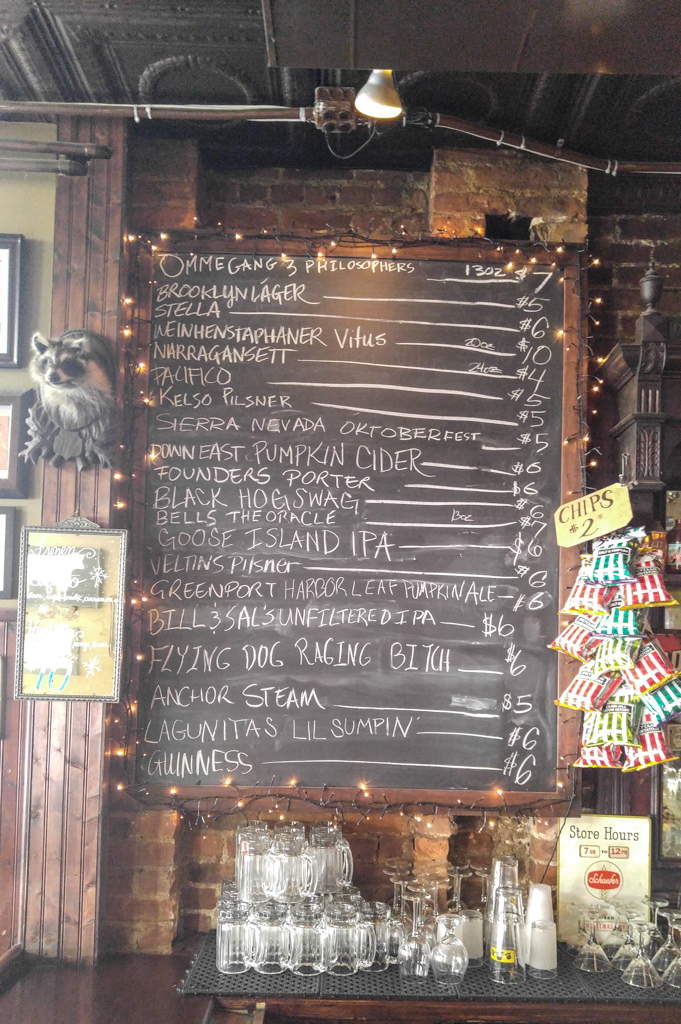 OMMEGANG 3 PHILOSOPHERS 13OZ $7
BROOKLYN LAGER $5
STELLA $6
WEINHENSTAPHANER Vitus 20oz $10
NARRAGANSETT 24oz $4
PACIFICO $5
KELSO PILSNER $5
SIERRA NEVADA OKTOBERFEST $5
DOWNEAST PUMPKIN CIDER $6
FOUNDERS PORTER $6
BLACK HOGSWAG $6
BELLS THE ORACLE 13oz $7
GOOSE ISLAND IPA $6
VELTINS Pilsner $6
GREENPORT HARBOR LEAF PUMPKIN ALE $6
BILL & SAL'S UNFILTERED IPA $6
FLYING DOG RAGING BITCH $6
ANCHOR STEAM $5
LAGUNITAS LIL SUMPIN' $6
GUINNESS $6
CHIPS
$2
Store Hours
TO
Schaefer